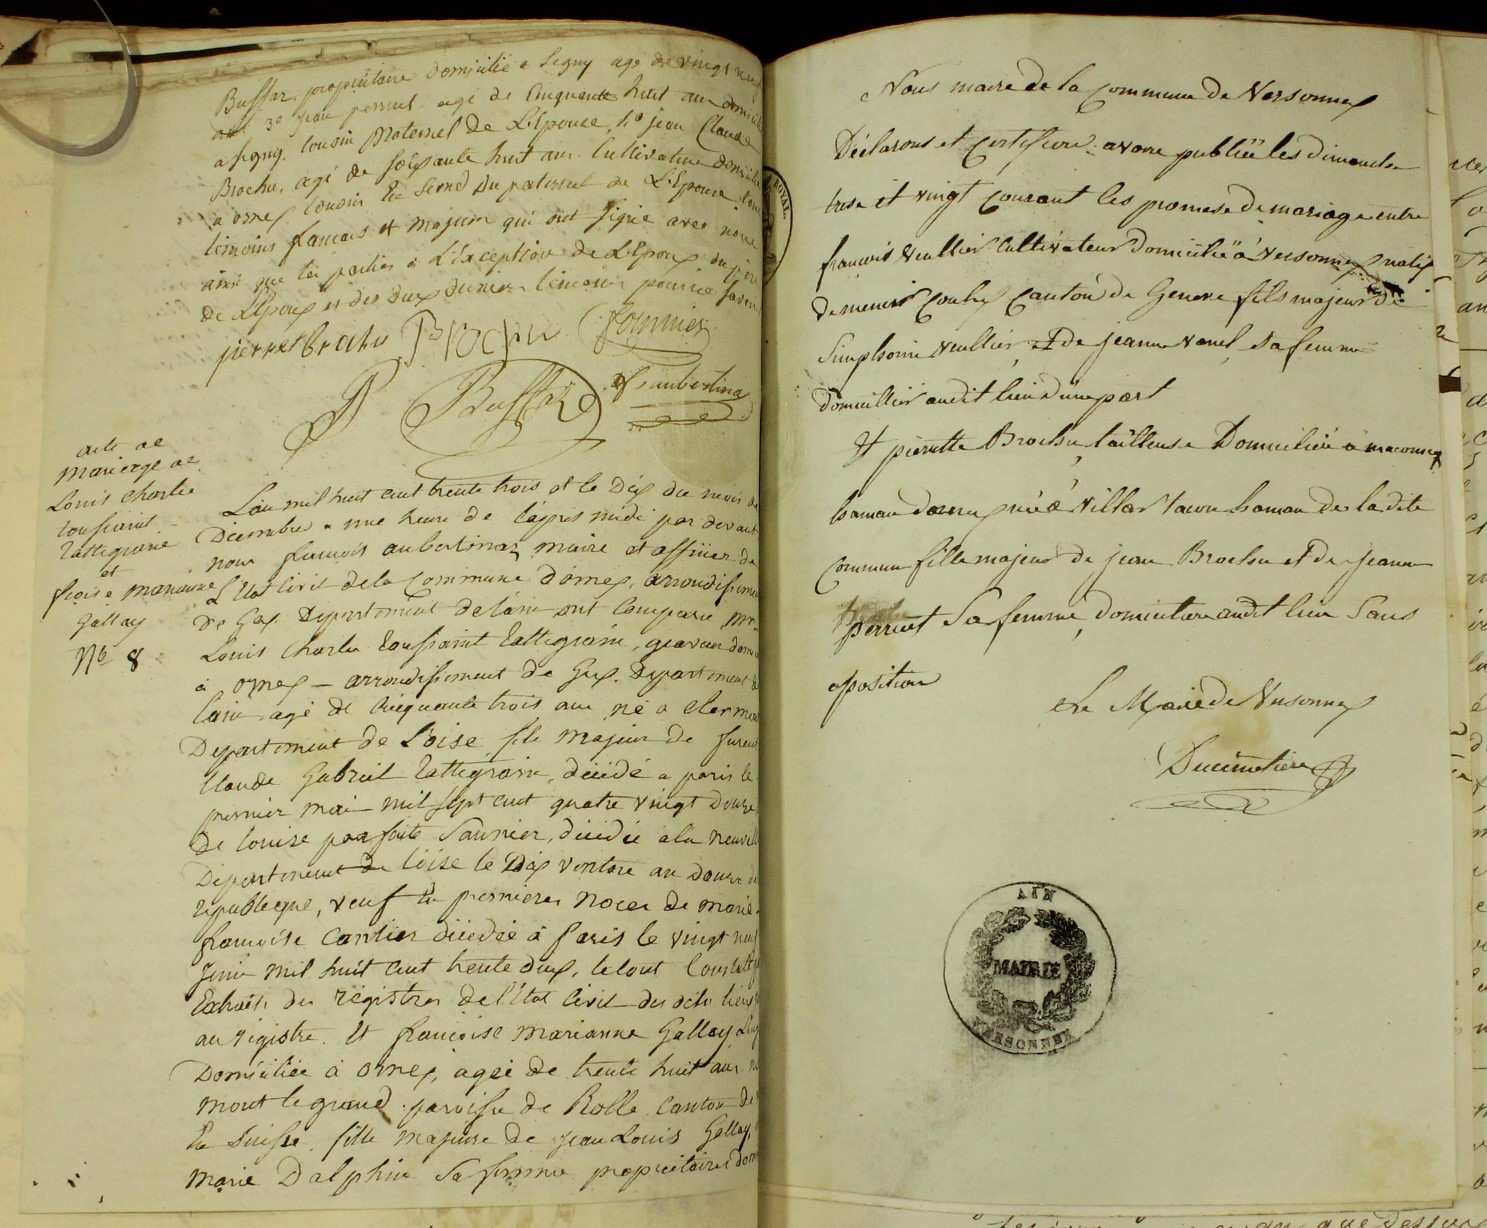 Buffaz, propriétaire Domicilié a Segny agé de vingt neuf
ans 3o jean perrust agé de Cinquante huit ans domicilié
a segny. Cousin Maternel de L'Epouse, 4o jean Claude
Brochu, agé de soixante huit ans Cultivateur domicilié
a ornex Cousin Paternel de L'Epouse
témoins francais et majeurs qui ont signé avec nous
ainsi que les parties a L'exception de L'Epoux du père
de L'Epoux et des Deux derniers témoins pour ne savoir
pierre brochu Brochu fournier
Buffaz f aubertinaz
acte de
Mariage de
Louis Charles
toussaint
tattegrain
et
fçoise marianne
Gallay
No 8
L'an mil huit cent trente trois et le Dix du mois de
Décembre a une heure de l'après midi par devant
nous françois aubertinaz maire et officier de
L'Etat Civil de la Commune d'ornex, arrondissement
de Gex Departement de l'ain ont Comparu Mr
Louis Charles toussaint tattegrain, graveur dom
à ornex — arrondissement de Gex. Departement de
l'ain agé de Cinquante trois ans né a Clermont
Departement de L'oise fils majeur de
Claude Gabriel tattegrain, décédé a paris le
premier mai mil sept cent quatre vingt Douze
de Louise parfaite Saunier, décédée a la neuville
Département de l'oise le Dix Ventose an Douze de
republeque, veuf en premieres noces de marie
françoise Cantier décédée à paris le vingt neuf
juin mil huit cent trente deux, le tout Constaté
Extraits des régistres de l'Etat Civil des dits lieux
au régistre. Et françoise marianne Gallay
Domiciliée à ornex, agée de trente huit ans
mont le grand paroisse de Rolle Canton de
la Suisse, fille majeure de jean Louis Gallay,
marie Dalphin Sa femme propriétaires dom
Nous maire de la Commune de Versonnex
Déclarons et Certifions avoir publiée les dimanches
treise et vingt Courant les promese de mariage entre
françois veullier Cultivateur Domicilié à Versonnex natif
de menier Coulex Canton de Geneve fils majeur de
Simphorin veullier et de jeanne vanel sa femme
domicilliés audit lieu d'une part
Et pierrette Brochu tailleuse Domiciliée a maconnex
hamau dornex née à villar tacon hamau de la dite
Commune fille majeur de jean Brochu et de jeanne
perrust Sa femme, domiciliers audit lieu Sans
oposition
Le Maire de Versonnex
Ducimetiere
ROYAL.
AIN
MAIRIE
VERSONNEX